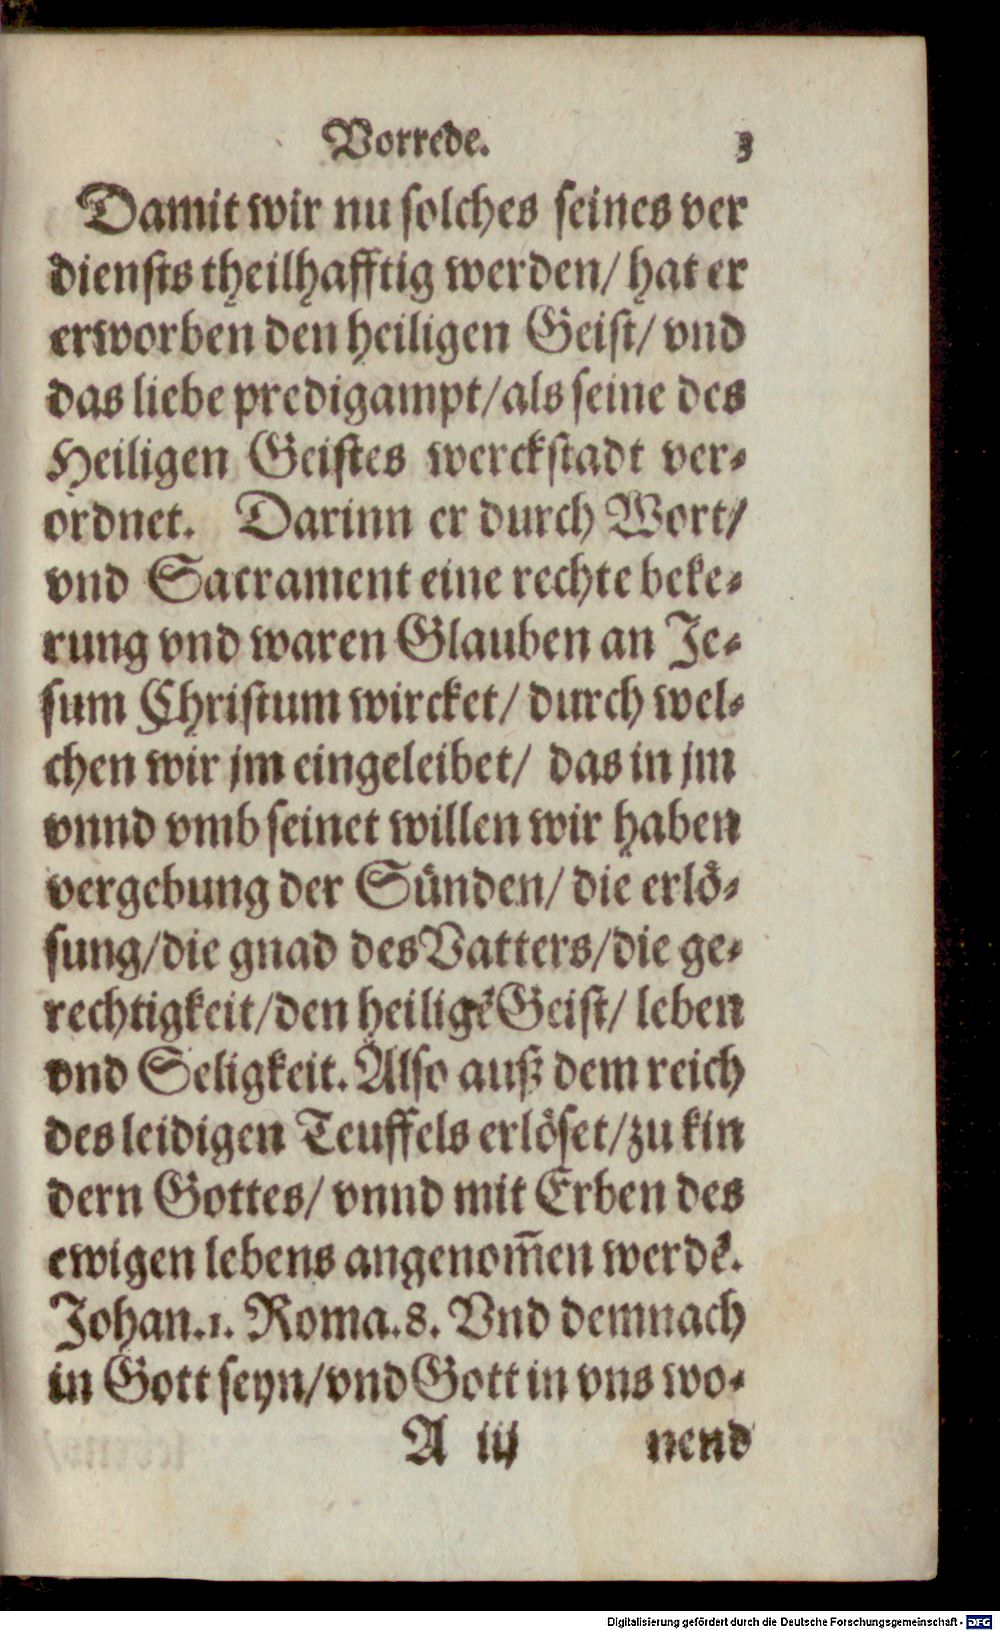 Vorrede. 3
Damit wir nu solches seines ver
diensts theilhafftig werden/ hat er
erworben den heiligen Geist/ vnd
das liebe predigampt/als seine des
Heiligen Geistes werckstadt ver-
ordnet. Darinn er durch Wort/
vnd Sacrament eine rechte beke-
rung vnd waren Glauben an Je-
sum Christum wircket/ durch wel-
chen wir jm eingeleibet/ das in jm
vnnd vmb seinet willen wir haben
vergebung der Sünden/ die erlö-
sung/die gnad des Vatters/die ge-
rechtigkeit/den heiligē Geist/ leben
vnd Seligkeit. Also auß dem reich
des leidigen Teuffels erlöset/zu kin
dern Gottes/ vnnd mit Erben des
ewigen lebens angenom̄en werdē.
Johan.1. Roma.8. Vnd demnach
in Gott seyn/vnd Gott in vns wo-
A iij nend
Digitalisierung gefördert durch die Deutsche Forschungsgemeinschaft - DFG